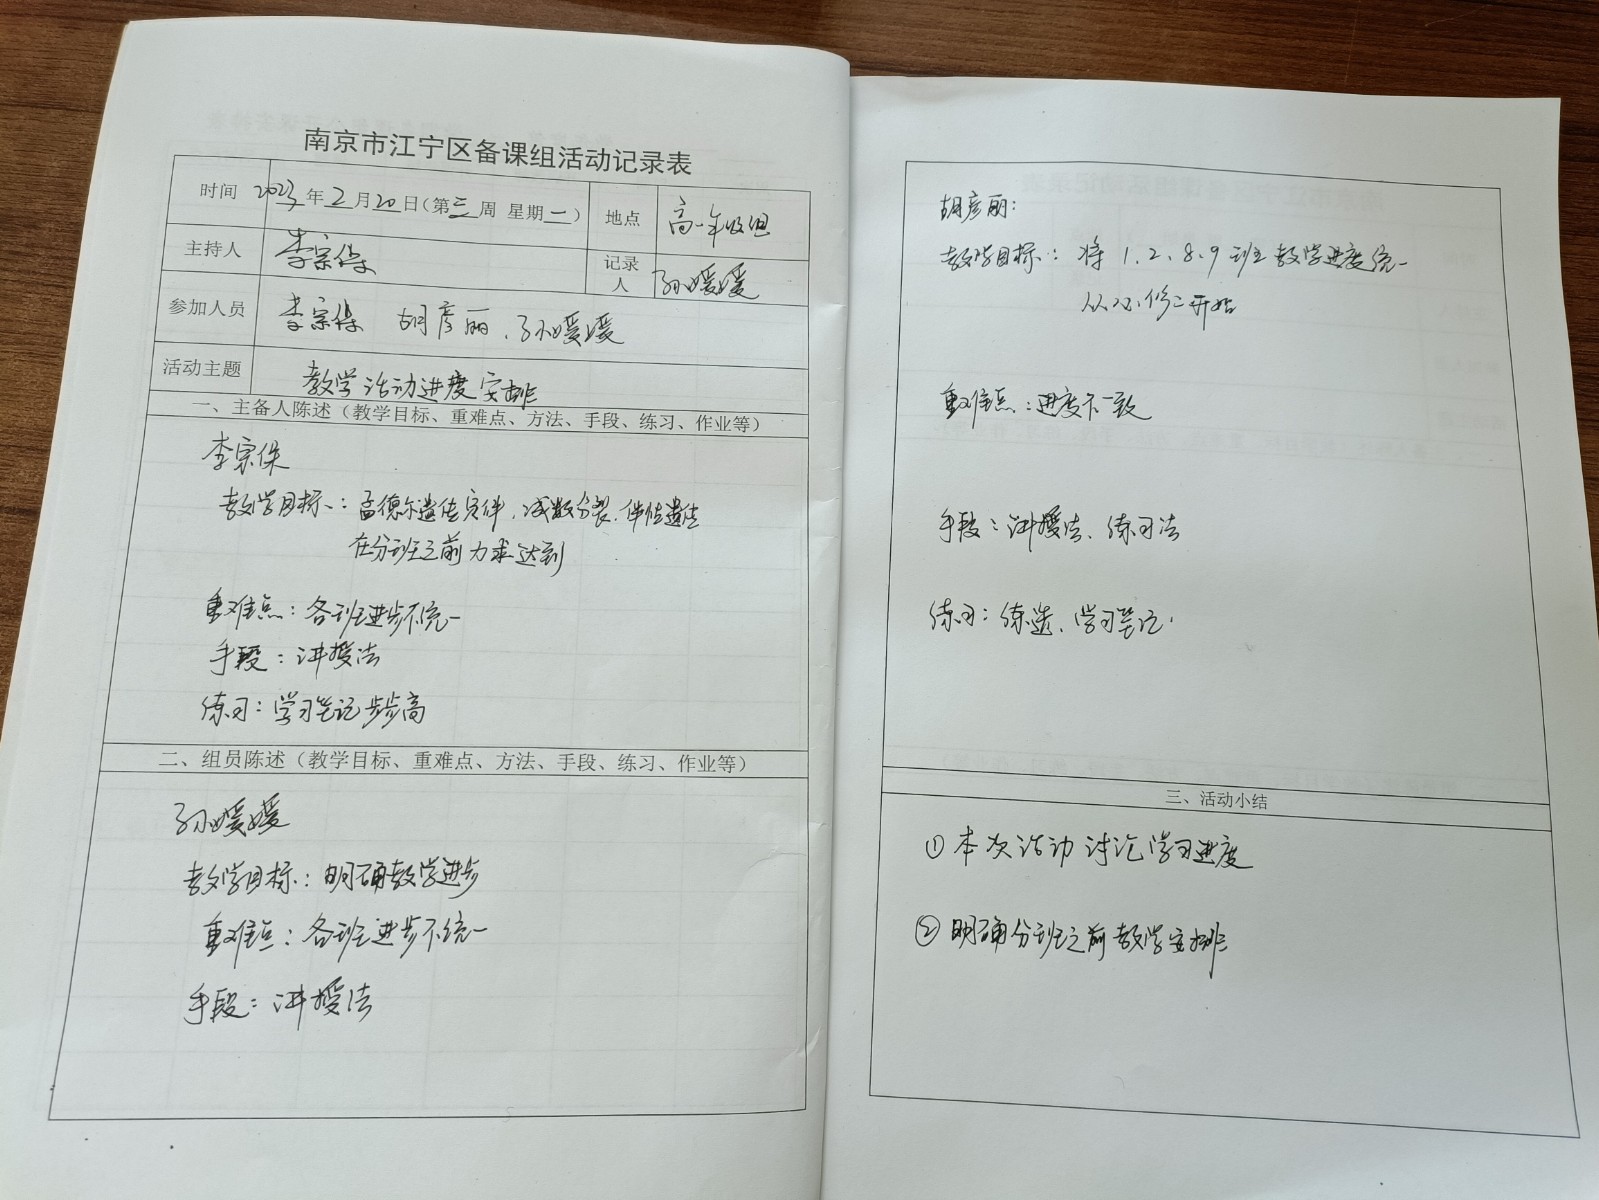 南京市江宁区备课组活动记录表
时间 2023年2月20日(第三周 星期一) 地点 高一年级组
主持人 李宗保 记录人 孙媛媛
参加人员 李宗保 胡彦丽、孙媛媛
活动主题 教学活动进度安排
一、主备人陈述（教学目标、重难点、方法、手段、练习、作业等）
李宗保
教学目标：孟德尔遗传定律、减数分裂、伴性遗传
在分班之前力求达到
重难点：各班进步不统一
手段：讲授法
练习：学习笔记 步步高
二、组员陈述（教学目标、重难点、方法、手段、练习、作业等）
孙媛媛
教学目标：明确教学进步
重难点：各班进步不统一
手段：讲授法
胡彦丽：
教学目标：将1、2、8、9班教学进度统一
从必修二开始
重难点：进度不一致
手段：讲授法、练习法
练习：学习笔记
三、活动小结
①本次活动讨论学习进度
②明确分班之前教学安排